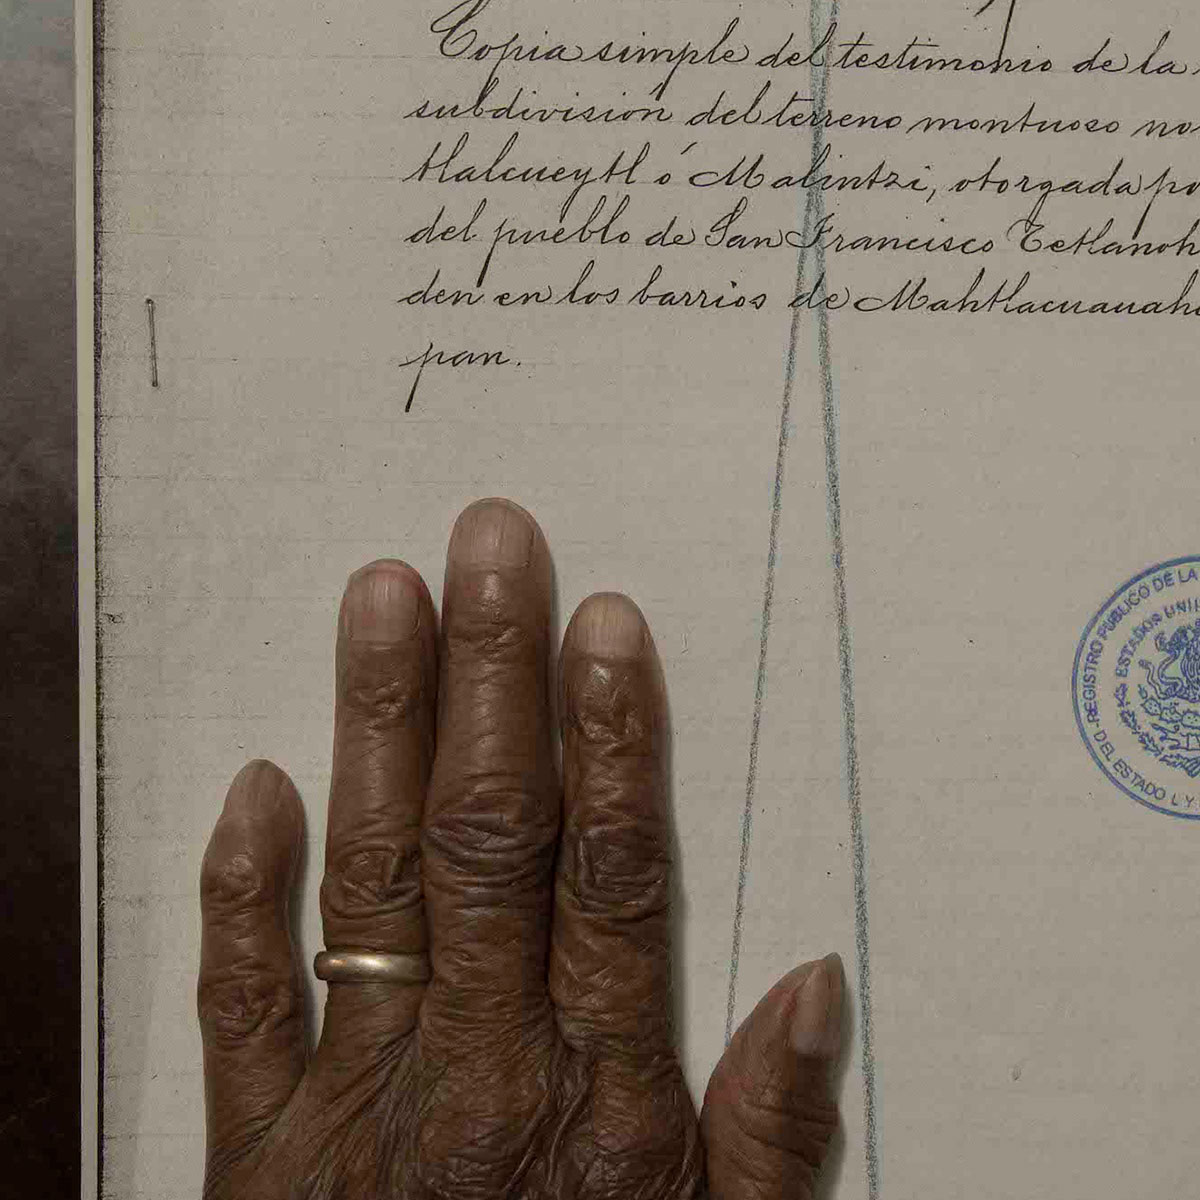 Copia simple del testimonio de la
subdivisión del terreno montuoso no
tlalcueytl ó Malintzi, otorgada po
del pueblo de San Francisco Tetlanoh
den en los barrios de Mahtlacuauahu
pan.
REGISTRO PÚBLICO DE LA
ESTADOS UNI
D. DEL ESTADO L. Y.